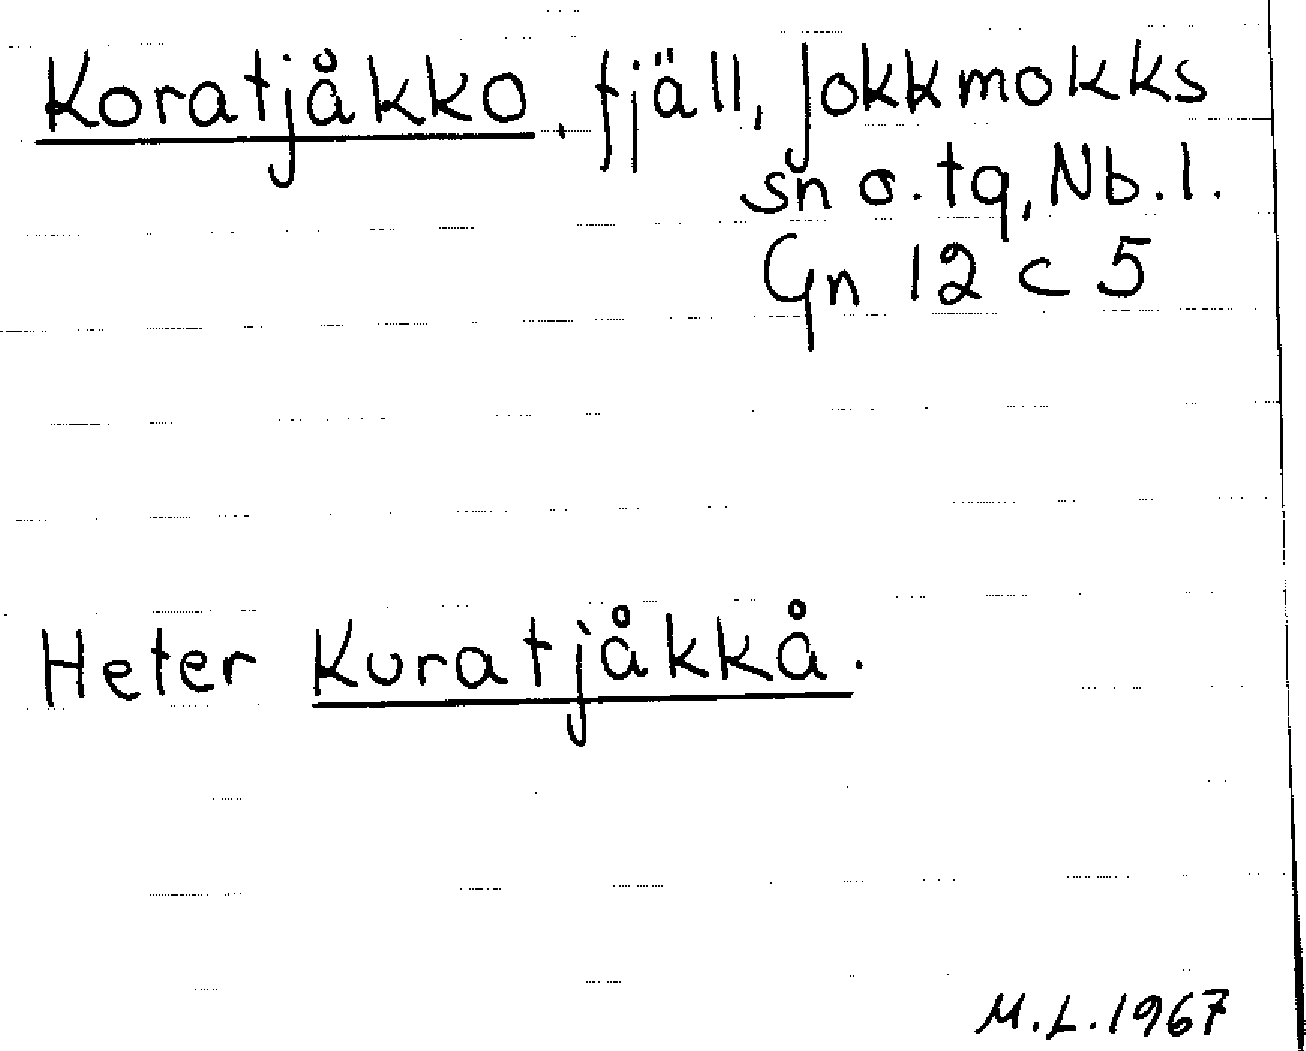 Koratjåkko, fjäll, Jokkmokks
sn o. tg, Nb. l.
Gn 12 c 5
Heter Kuratjåkkå.
M.L. 1967